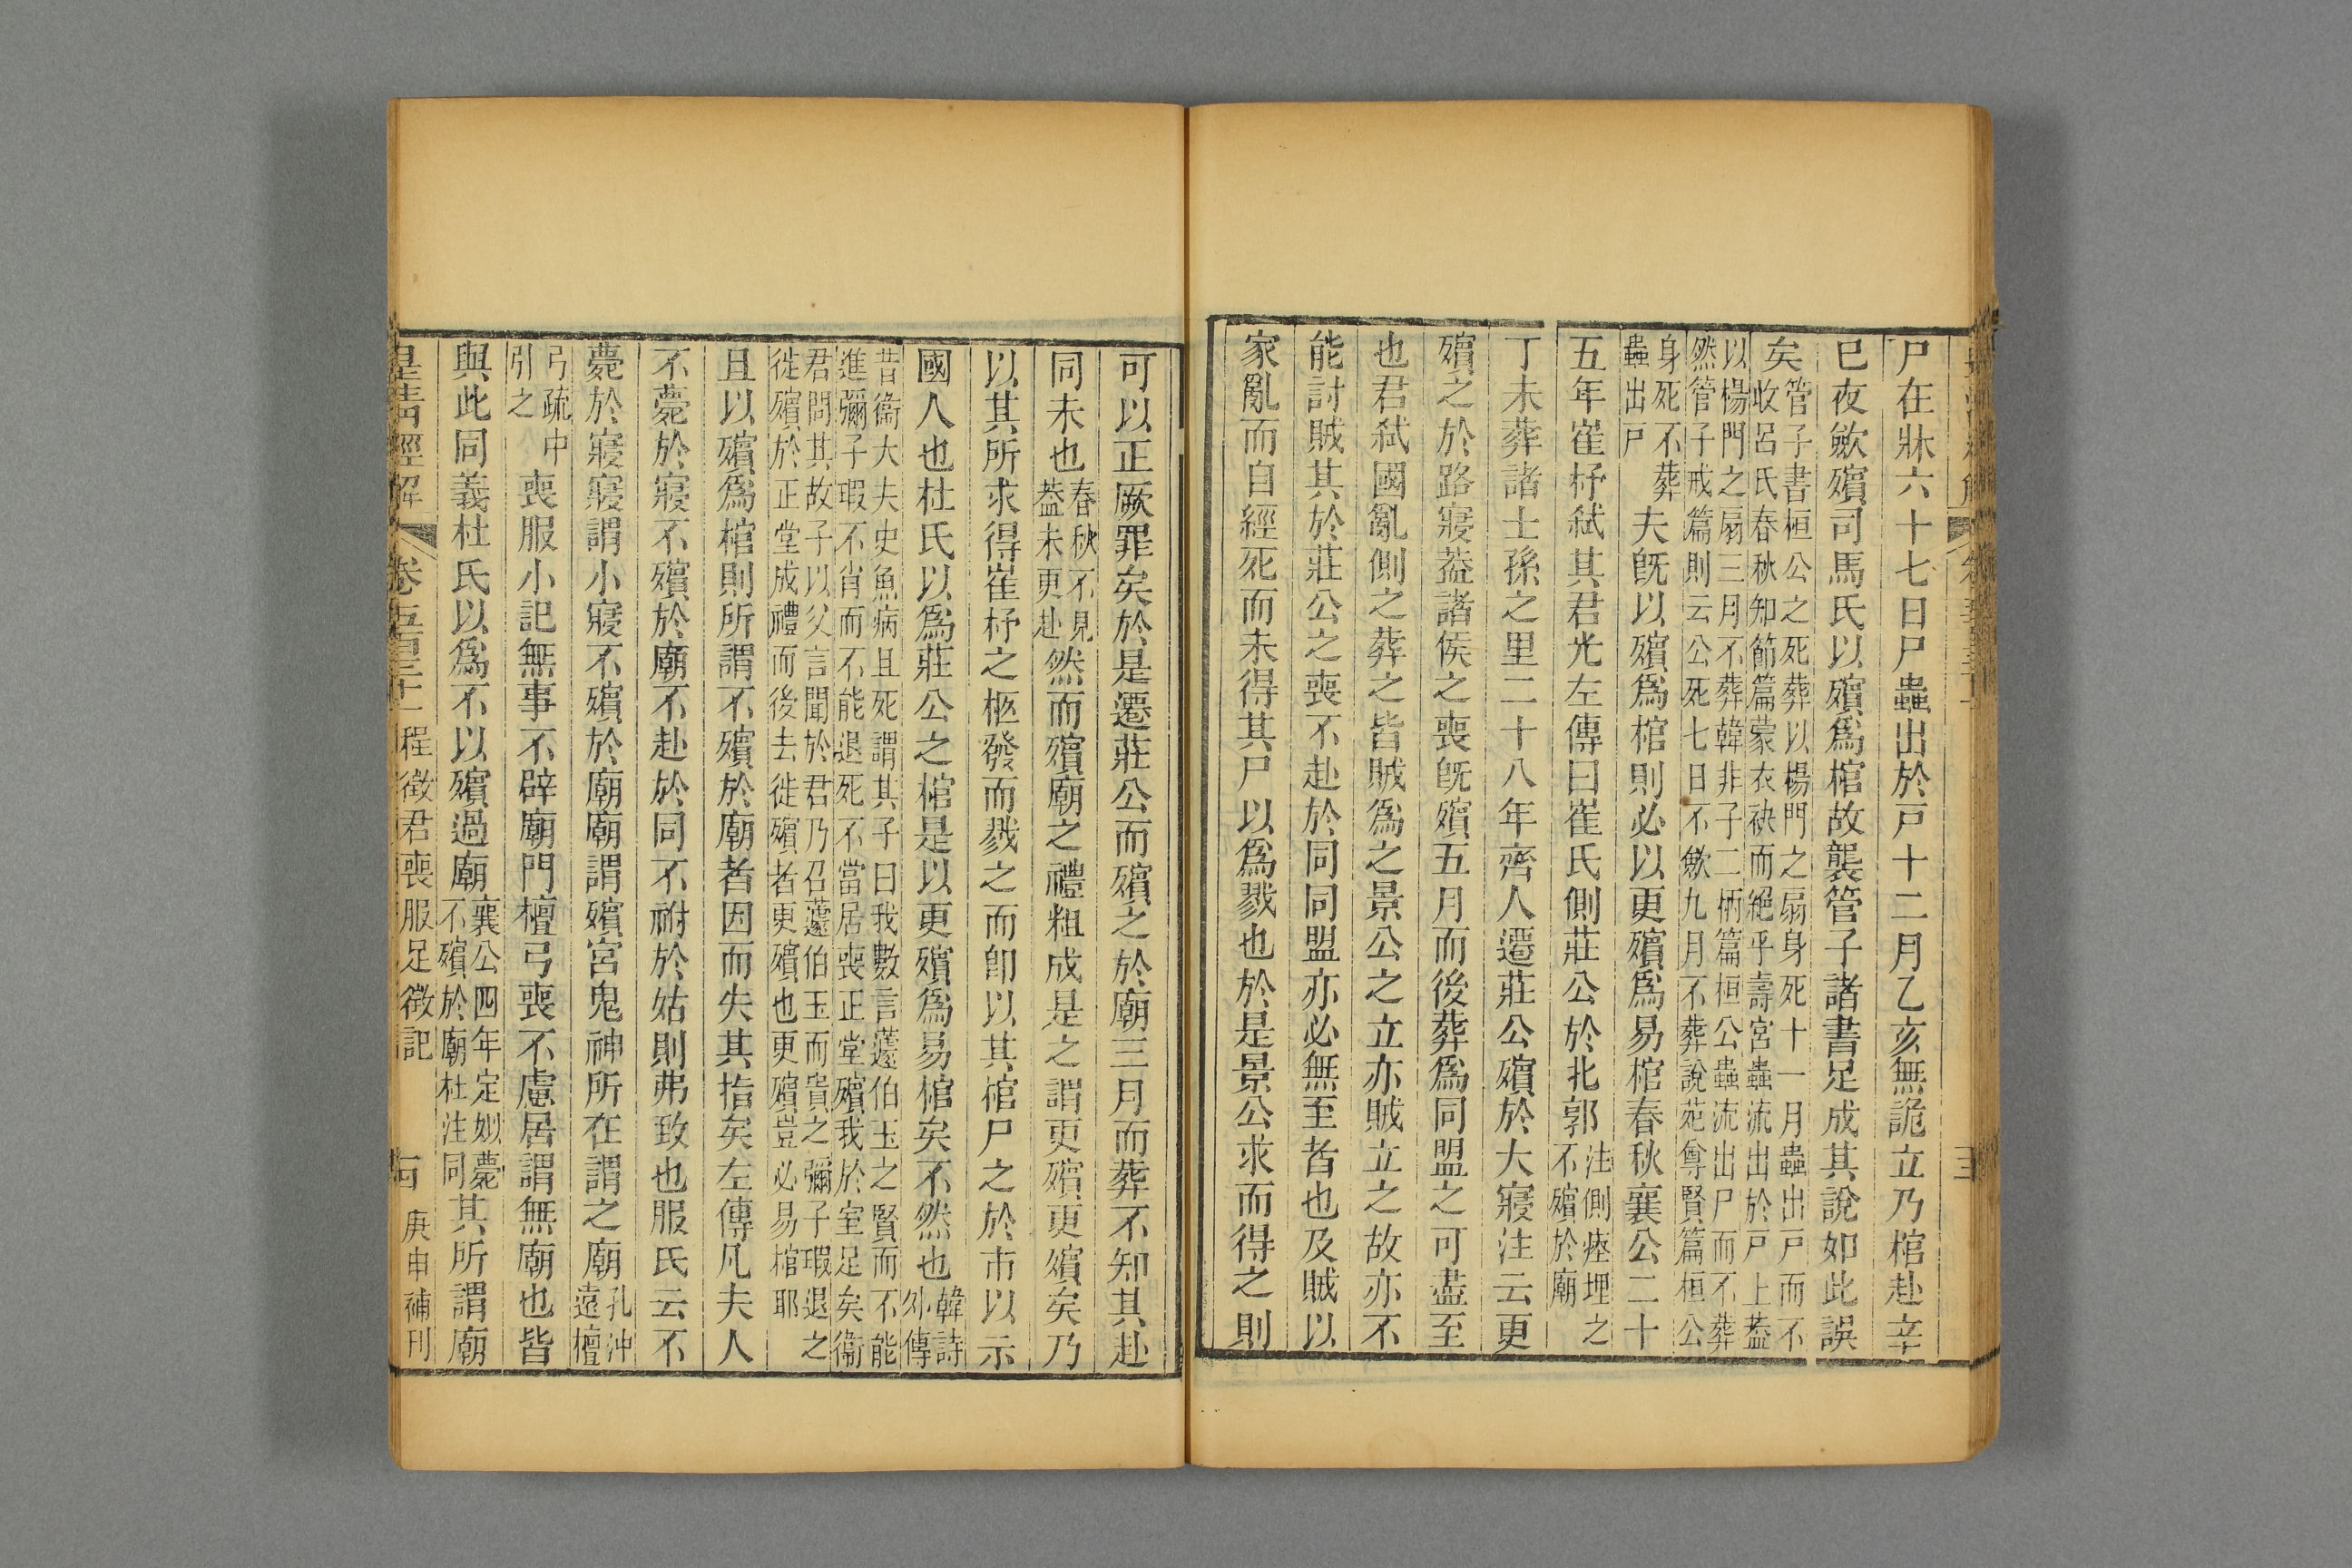 尸在牀六十七日尸蟲出於戸十二月乙亥無詭立乃棺赴辛
巳夜斂殯司馬氏以殯爲棺故襲管子諸書足成其說如此誤
矣管子書桓公之死葬以楊門之扇身死十一月蟲出戸而不
收呂氏春秋知節篇蒙衣袂而絕乎壽宮蟲流出於戸上葢
以楊門之扇三月不葬韓非子二柄篇桓公蟲流出尸而不葬
然管子戒篇則云公死七日不斂九月不葬說苑尊賢篇桓公
身死不葬
蟲出戸夫既以殯爲棺則必以更殯爲易棺春秋襄公二十
五年崔杼弑其君光左傳曰崔氏側莊公於北郭注側瘞埋之
不殯於廟
丁未葬諸士孫之里二十八年齊人遷莊公殯於大寢注云更
殯之於路寢葢諸侯之喪既殯五月而後葬爲同盟之可盡至
也君弑國亂側之葬之皆賊爲之景公之立亦賊立之故亦不
能討賊其於莊公之喪不赴於同同盟亦必無至者也及賊以
家亂而自經死而未得其尸以爲戮也於是景公求而得之則
可以正厥罪矣於是遷莊公而殯之於廟三月而葬不知其赴
同未也春秋不見
葢未更赴然而殯廟之禮粗成是之謂更殯更殯矣乃
以其所求得崔杼之柩發而戮之而卽以其棺尸之於市以示
國人也杜氏以爲莊公之棺是以更殯爲易棺矣不然也韓詩
外傳
昔衞大夫史魚病且死謂其子曰我數言蘧伯玉之賢而不能
進彌子瑕不肖而不能退死不當居喪正堂殯我於室足矣衞
君問其故子以父言聞於君乃召蘧伯玉而貴之彌子瑕退之
徙殯於正堂成禮而後去徙殯者更殯也更殯豈必易棺耶
且以殯爲棺則所謂不殯於廟者因而失其指矣左傳凡夫人
不薨於寢不殯於廟不赴於同不祔於姑則弗致也服氏云不
薨於寢寢謂小寢不殯於廟廟謂殯宮鬼神所在謂之廟孔沖
遠檀
弓疏中
引之喪服小記無事不辟廟門檀弓喪不慮居謂無廟也皆
與此同義杜氏以爲不以殯過廟襄公四年定姒薨
不殯於廟杜注同其所謂廟
皇淸經解 卷五百三十一 程徵君喪服足徵記 十四 庚申補刊